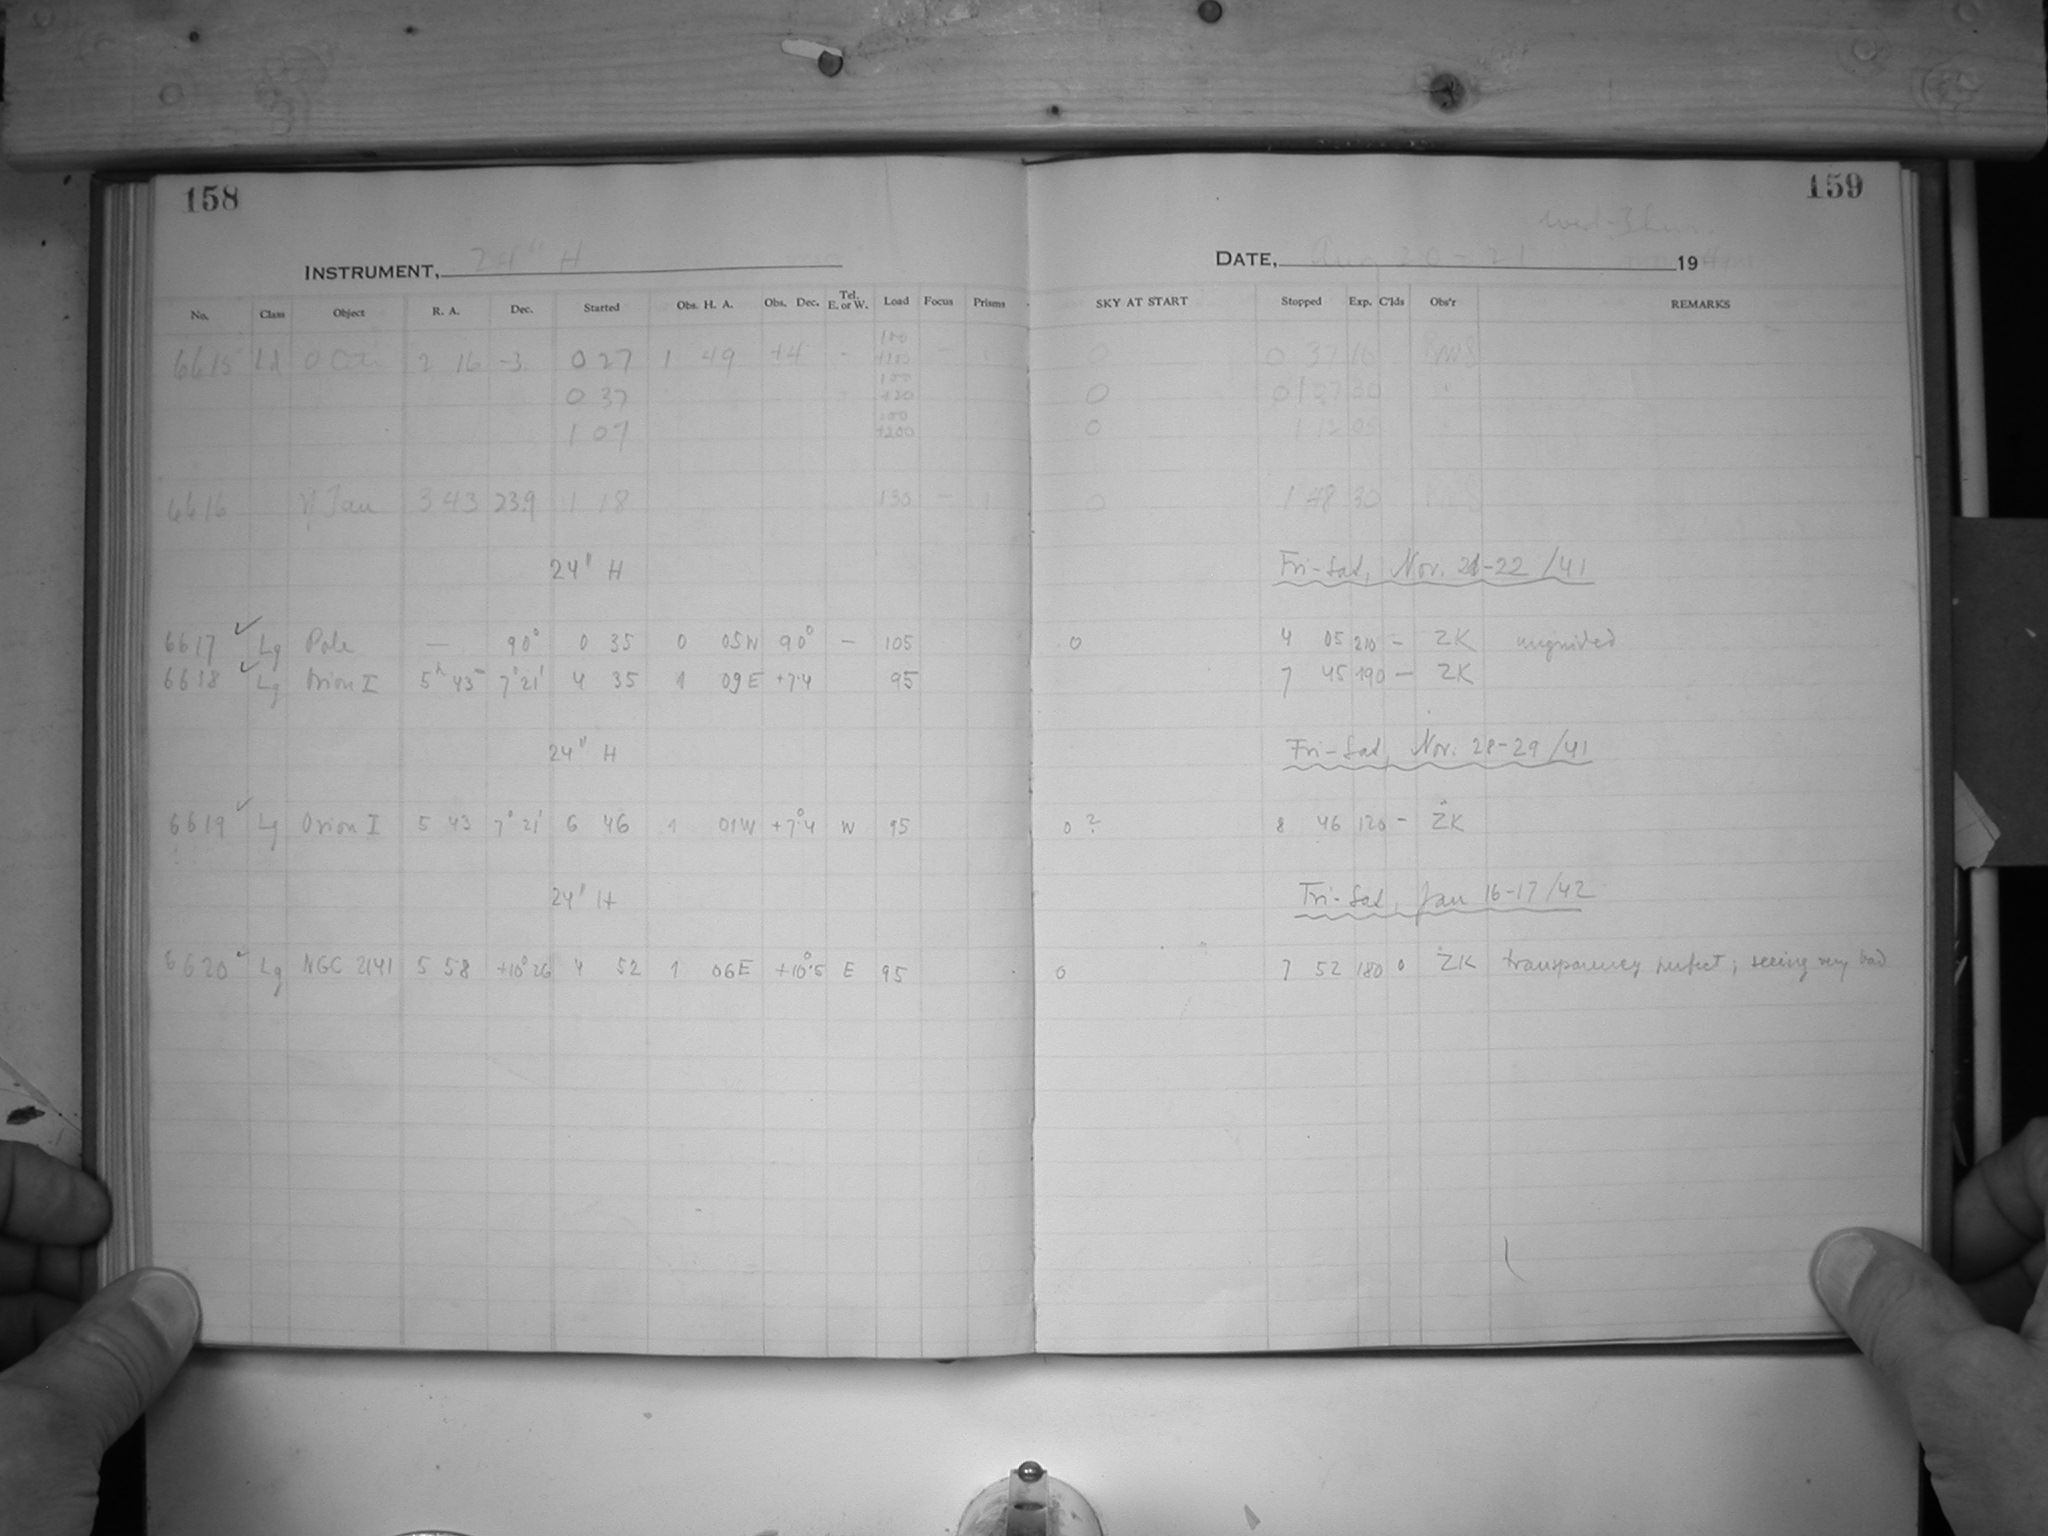 158
159
INSTRUMENT, 24" H
DATE, Aug 20-21 19
No. Class Object R. A. Dec. Started Obs. H. A. Obs. Dec. Tel. E. or W. Load Focus Prisms SKY AT START Stopped Exp. C'lds Obs'r REMARKS
6615 Ld 2 16 -3 0 27 1 49 +4 - 100 0 0 37 10
0 37 100 +20 0 30
1 07 100 +200 0 1 12 05
6616 η Tau 3 43 23.9 1 18 130 - 1 0 1 48 30
24" H Fri-Sat, Nov. 21-22 /41
6617 ✓ Lg Pole — 90° 0 35 0 05W 90° — 105 0 4 05 210 - ZK
6618 ✓ Lg Orion I 5h 43m 7°21' 4 35 1 09E +7.4 95 7 45 190 - ZK
24" H Fri-Sat, Nov. 28-29 /41
6619 ✓ Lg Orion I 5 43 7°21' 6 46 1 01W +7°.4 W 95 0 ? 8 46 120 - ŻK
24" H Fri-Sat, Jan 16-17 /42
6620 ✓ Lg NGC 2141 5 58 +10°26 4 52 1 06E +10°.5 E 95 0 7 52 180 0 ŻK transparency perfect; seeing very bad